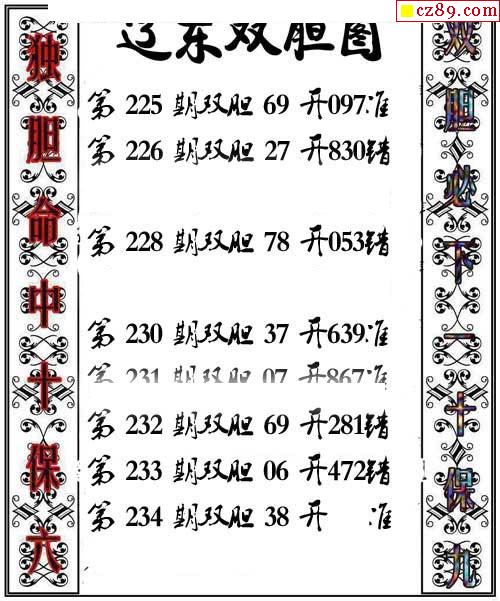 cz89.com
辽东双胆图
独胆命中十保六
第 225 期双胆 69 开097准
第 226 期双胆 27 开830错
第 228 期双胆 78 开053错
第 230 期双胆 37 开639准
第 231 期双胆 07 开867准
第 232 期双胆 69 开281错
第 233 期双胆 06 开472错
第 234 期双胆 38 开 准
双胆必下一十保九